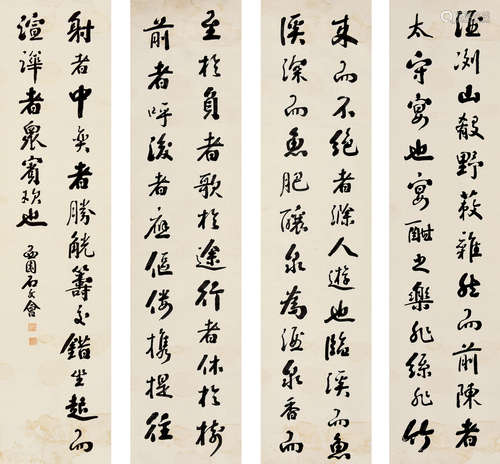 酒洌山殽野蔌雜然而前陳者
太守宴也宴酣之樂非絲非竹
來而不絕者滁人遊也臨溪而魚
溪深而魚肥釀泉為酒泉香而
至於負者歌於途行者休於樹
前者呼後者應傴僂携提往
射者中奕者勝觥籌交錯坐起而
諠譁者眾賓歡也